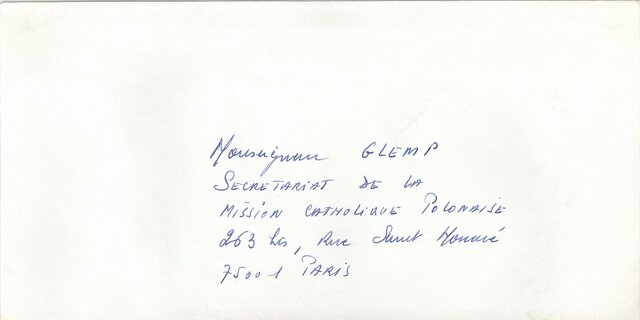 Monseigneur GLEMP
SECRETARIAT DE LA
MISSION CATHOLIQUE POLONAISE
263 bis, Rue Saint Honoré
75001 PARIS